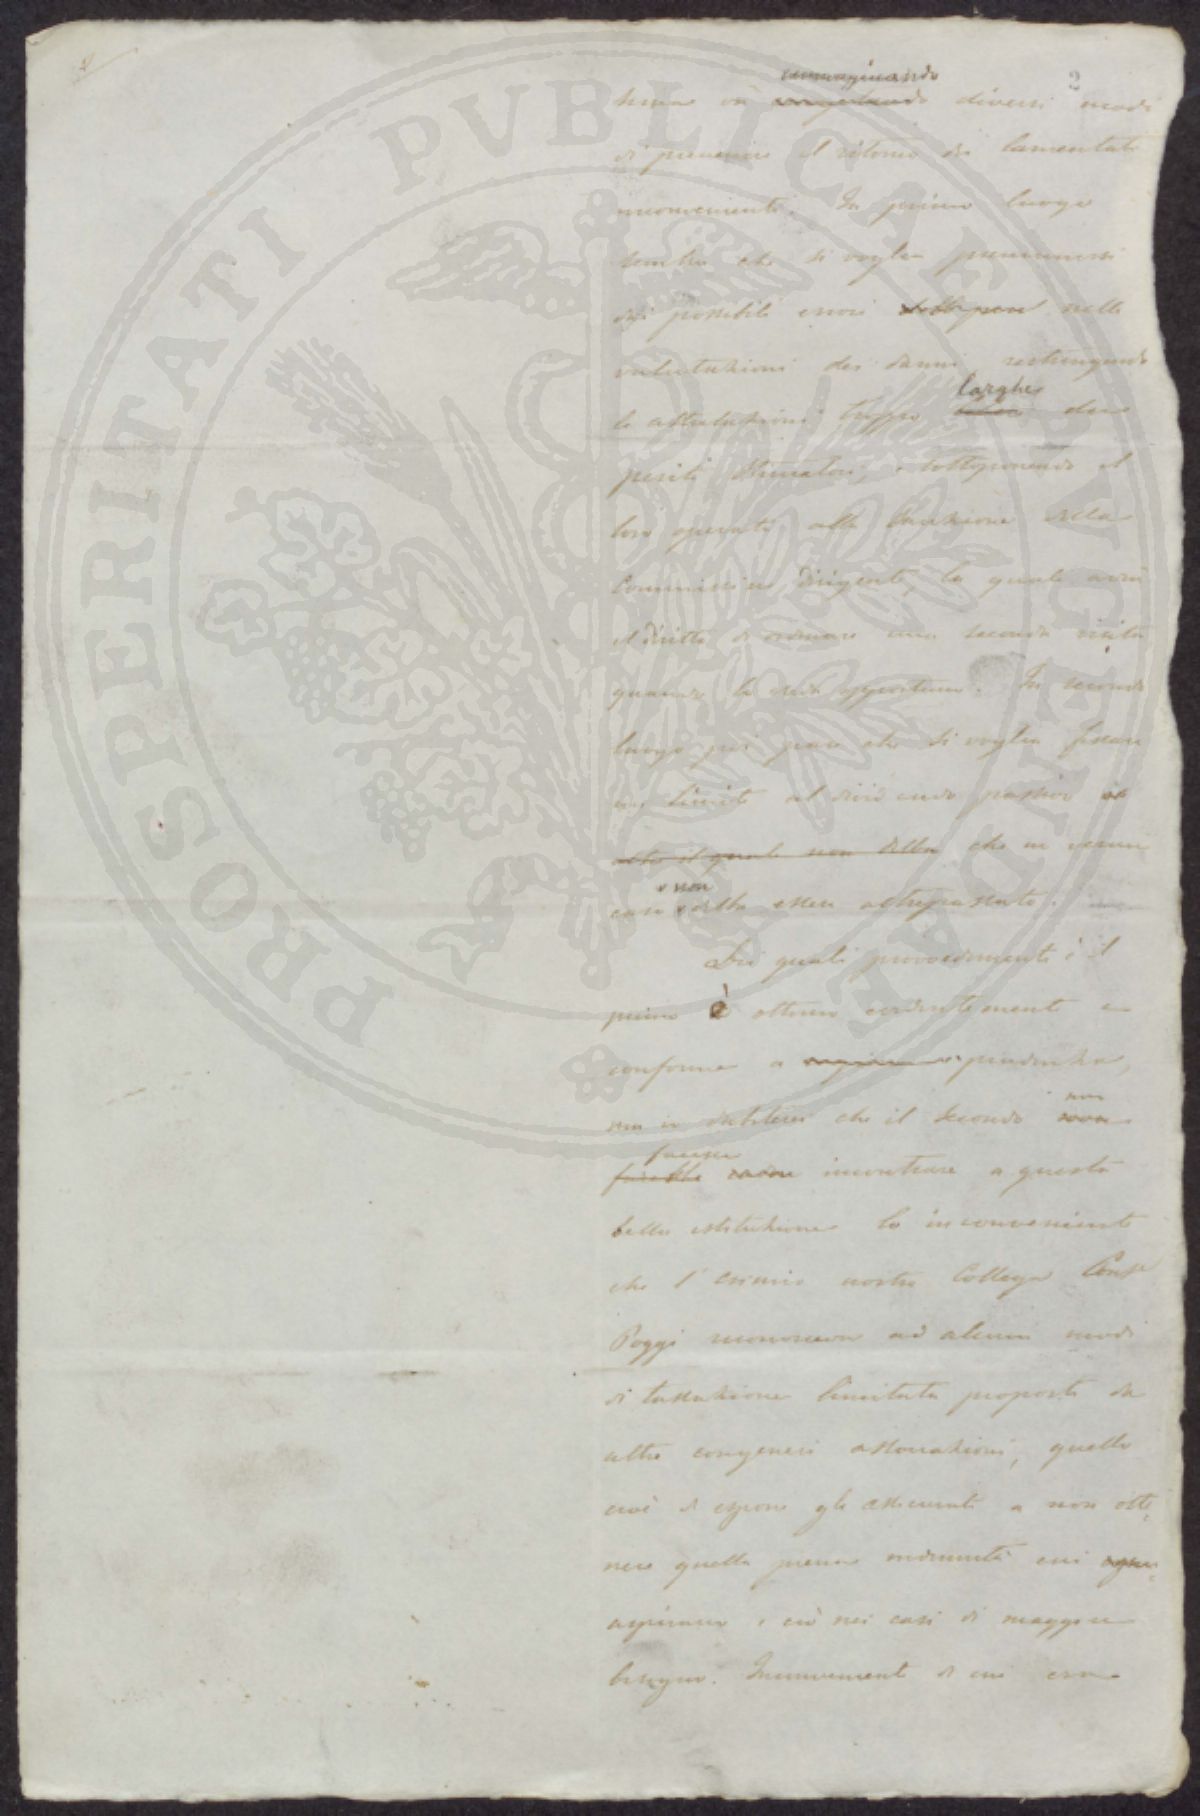 PROSPERITATI PUBLICAE AUGENDAE
2
immaginando
diversi modi
di prevenire il ritorno dei lamentati
inconvenienti. In primo luogo
sembra che si voglia premunirsi
dai possibili errori nelle
valutazioni dei danni restringendo
larghe
le attribuzioni troppo dei
periti stimatori, e sottoponendo il
loro operato alla sanzione della
Commissione dirigente, la quale avrà
il diritto di ordinare una seconda visita
quando la creda opportuna. In secondo
luogo poi pare che si voglia fissare
un limite al dividendo passivo
oltre il quale non debba che in verun
non
caso debba essere oltrepassato.
Dei quali provvedimenti il
primo è ottimo evidentemente e
conforme a prudenza,
ma io dubiterei che il secondo non
facesse
farebbe incontrare a questa
bella istituzione lo inconveniente
che l'esimio nostro Collega Conte
Poggi riconosceva ad alcuni modi
di tassazione limitata proposti da
altre congeneri associazioni, quello
cioè di esporre gli assicurati a non otte-
nere quella piena indennità cui
aspirano, e ciò nei casi di maggiore
bisogno. Inconveniente di cui